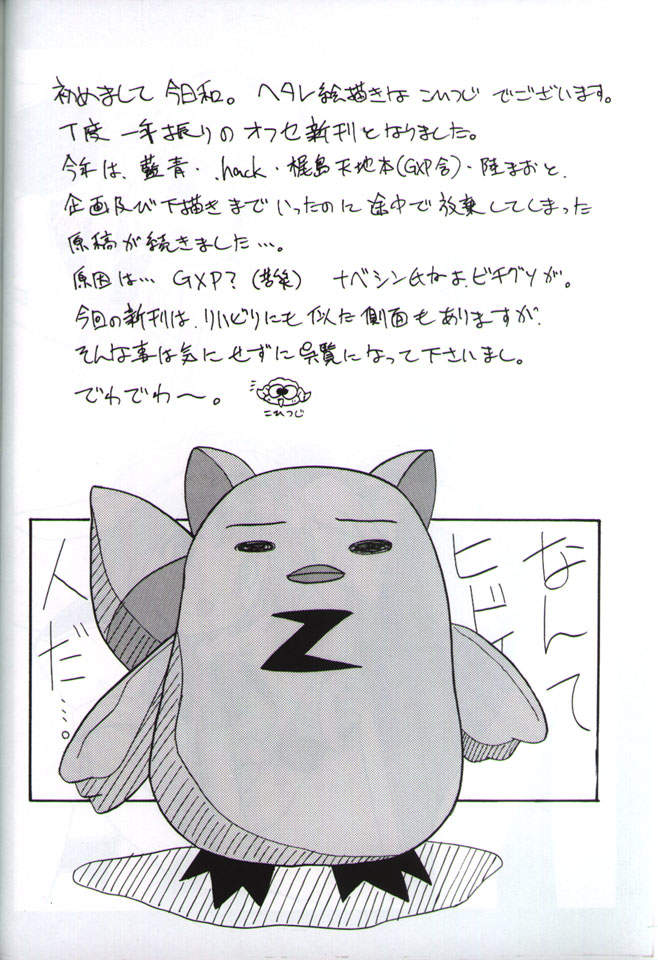 初めまして今日和。ヘタレ絵描きなこひつじでございます。
丁度一年振りのオフセ新刊となりました。
今年は、藍青・.hack・梶島天地本(GXP含)・陸まおと、
企画及び下描きまでいったのに途中で放棄してしまった
原稿が続きました…。
原因は… GXP?(苦笑) ナベシン氏なよ、ビチグソが。
今回の新刊は、りいどりにも似た側面もありますが、
そんな事は気にせずに呉覧になって下さいまし。
でわでわ〜。
こひつじ
なんて
ヒドイ
人だ…。
Z